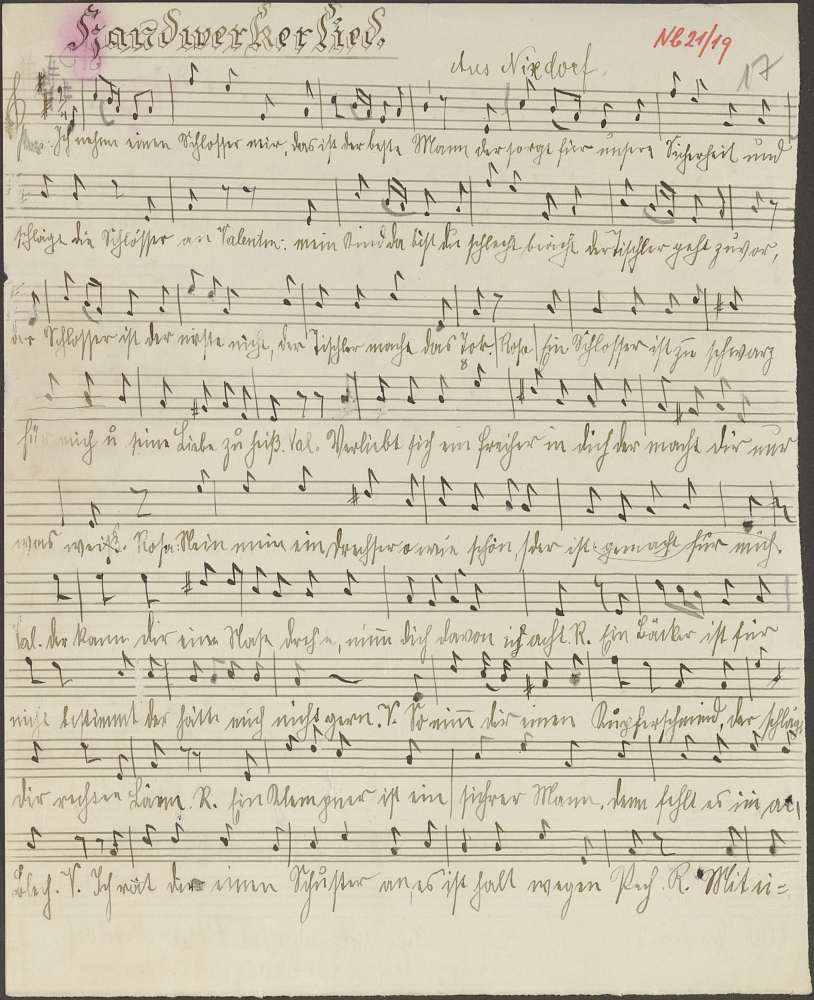 Handwerker Lied.
Nl 21/19
Aus Nixdorf.
17
Rosa: Ich nehm einen Schlosser mir, das ist der beste Mann der sorgt für unsere Sicherheit und
schlägt die Schlösser an Valentin: mein Kind da bist du schlecht bericht der Tischler geht zuvor,
der Schlosser ist der nicht, der Tischler macht das Tor. Rosa Ein Schlosser ist zu schwarz
für mich u seine Liebe zu heiß. Val. Verliebt sich ein in dich der macht dir nur
was weiß. Rosa: Nein nein ein Drechsler o wie schön, der ist gemacht für mich.
Val. der kann dir eine Nase drehn, nimm dich davon acht. R. Ein Bäcker ist für
nicht bestimmt der hätte mich nicht gern. V. So nimm dir einen Kupferschmied, der schlägt
dir rechten Lärm. R. Ein Klempner ist ein sichrer Mann, dem fehlt es nie an
Blech. V. Ich rat dir einen Schuster an, es ist halt wegen Pech. R. Mit ei=